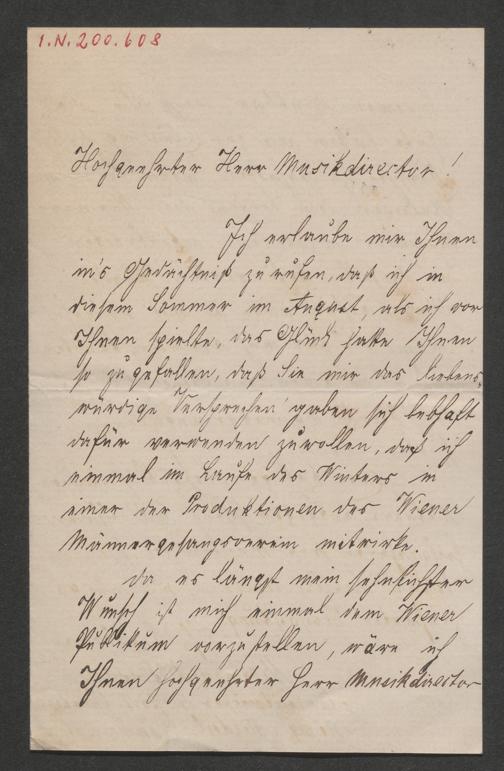 I.N. 200.608
Hochgeehrter Herr Musikdirector!
Ich erlaube mir Ihnen
in's Gedächtniß zu rufen, daß ich in
diesem Sommer im August, als ich vor
Ihnen spielte, das Glück hatte Ihnen
so zu gefallen, daß Sie mir das liebens,
würdige Versprechen gaben sich lebhaft
dafür verwenden zu wollen, daß ich
einmal im Laufe des Winters in
einer der Produktionen des Wiener
Männergesangsverein mitwirke.
Da es längst mein sehnlichster
Wunsch ist mich einmal dem Wiener
Publikum vorzustellen, wäre ich
Ihnen hochgeehrter Herr Musikdirector